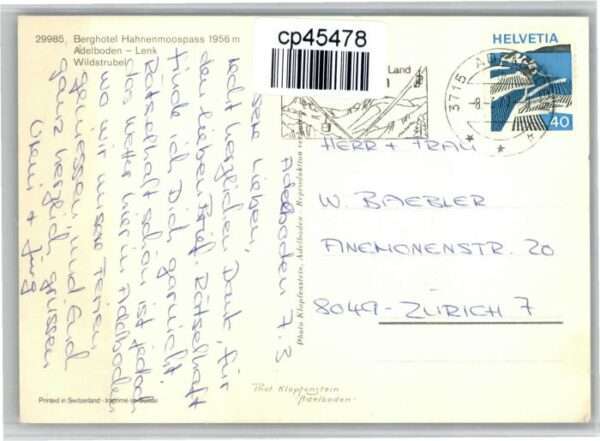 29985, Berghotel Hahnenmoospass 1956 m
Adelboden – Lenk
Wildstrubel
cp45478
HELVETIA
40
3715 AD
Land
Adelboden 7.3
Ihr Lieben,
recht herzlichen Dank für
den lieben Brief. Rätselhaft
finde ich Dich gar nicht!
Rätselhaft schön ist jedoch
das Wetter hier in Adelboden
wo wir unsere Ferien
geniessen und Euch
ganz herzlich grüssen
+ Jürg
HERR + FRAU
W. BAEBLER
ANEMONENSTR. 20
8049-ZÜRICH 7
Photo Klopfenstein, Adelboden - Reproduktion verboten
Phot Klopfenstein
Adelboden
Printed in Switzerland - Imprimé en Suisse